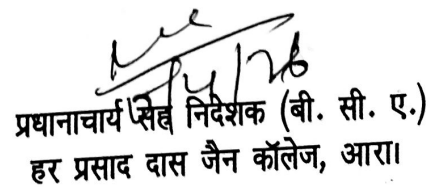 प्रधानाचार्य सह निदेशक (बी. सी. ए.)
हर प्रसाद दास जैन कॉलेज, आरा।